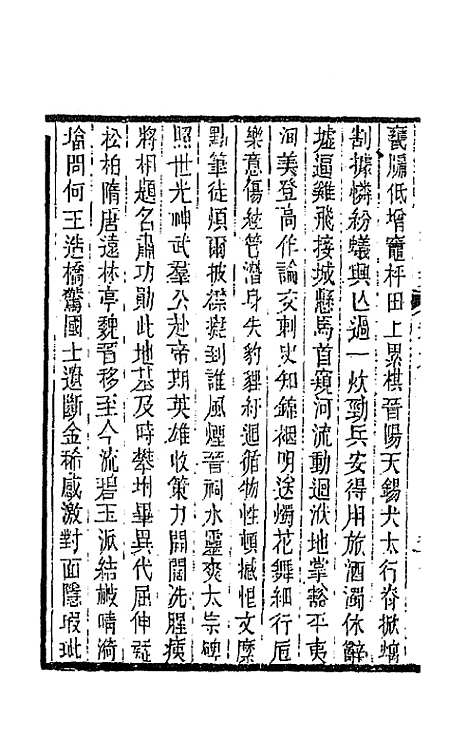 甕牖低增竈枰田上累棋晉陽天錫犬太行脊掀螭
割據憐紛蟻興亡過一炊勁兵安得用旅酒濁休辭
墟逼雞飛接城懸馬首窺河流動迴洑地掌豁平夷
洵美登高作論文刺史知錦裀明送燭花舞細行卮
樂意傷絃管潛身失豹貔紆迴循物性頓撼怛文縻
點筆徒煩爾披襟擬到誰風煙晉祠水靈爽太宗碑
照世光神武羣公赴帝期英雄收策力開闢洗腥痍
將相題名肅功勛此地基及時攀堺畢異代屈伸疑
松柏隋唐遠林亭魏晉移至今流碧玉派結敝晴漪
堦問何王造橋驚國士遺斷金稀感激對面隱瑕玼